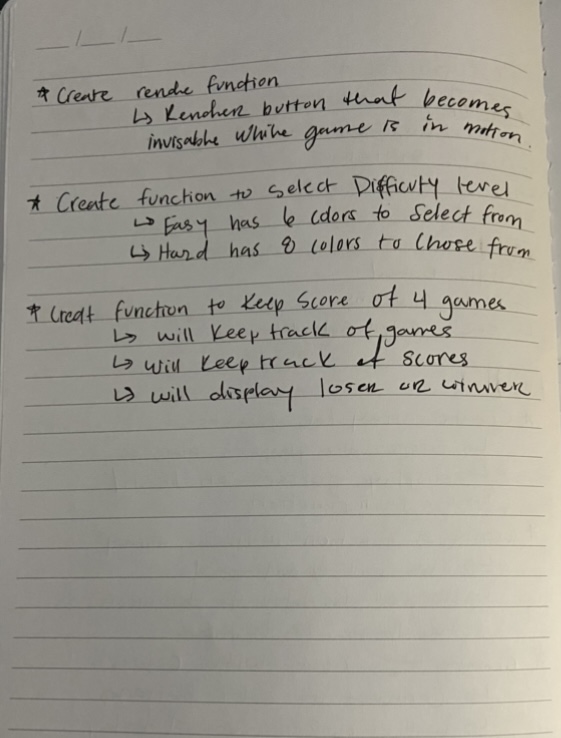 __/__/__
* Create rende function
↳ Render button that becomes
invisable while game is in motion.
* Create function to select Difficulty level
↳ Easy has 6 colors to select from
↳ Hard has 8 colors to chose from
* Creat function to keep score of 4 games
↳ will keep track of games
↳ will keep track of scores
↳ will display loser or winner